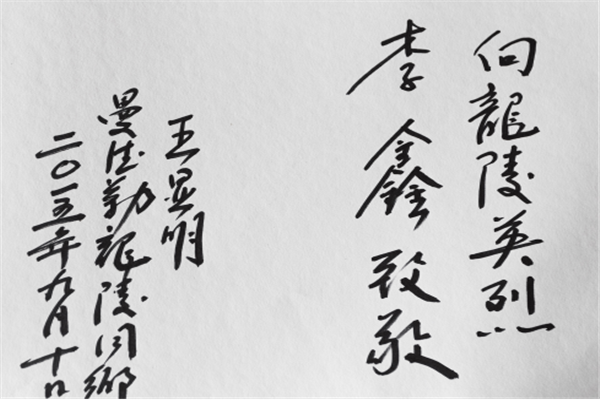 向龍陵英烈
李鑫致敬
王显明
曼德勒龍陵同鄉
二〇一五年九月十日